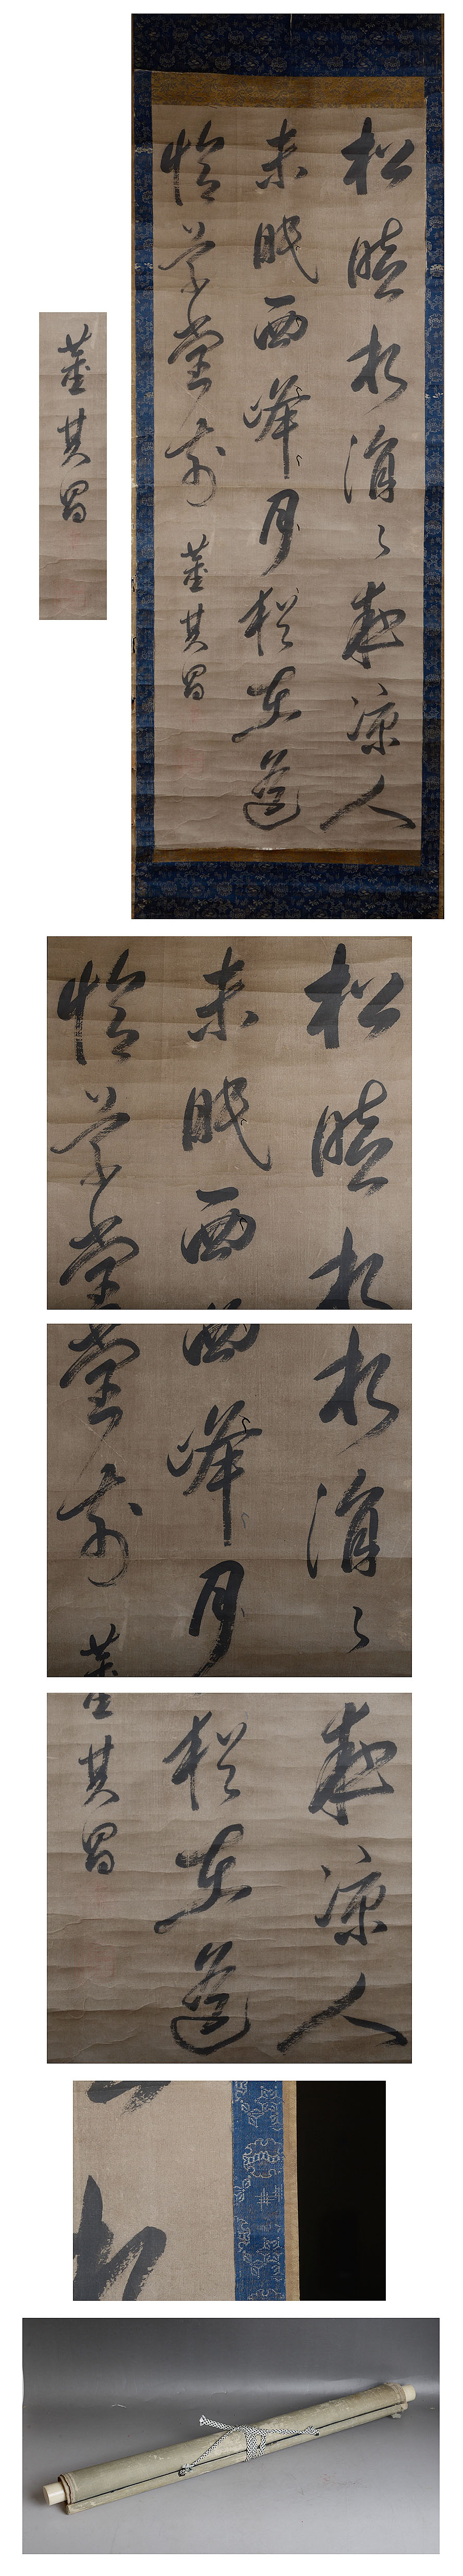 松暗水涓々夜凉人
未眠西峰月猶在遥
憶草堂前
董其昌
董其昌
松暗水
未眠西
憶草堂
水涓々
西峰月
堂前
董
夜凉人
猶在遥
其昌